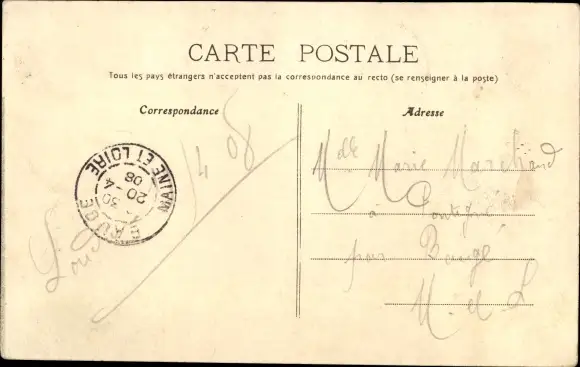 CARTE POSTALE
Tous les pays étrangers n'acceptent pas la correspondance au recto (se renseigner à la poste)
Correspondance
Adresse
BAUGE
MAINE ET LOIRE
30
20-4
08
14 08
Mdlle Marie Marchand
à Pontigné
par Baugé
M. et L